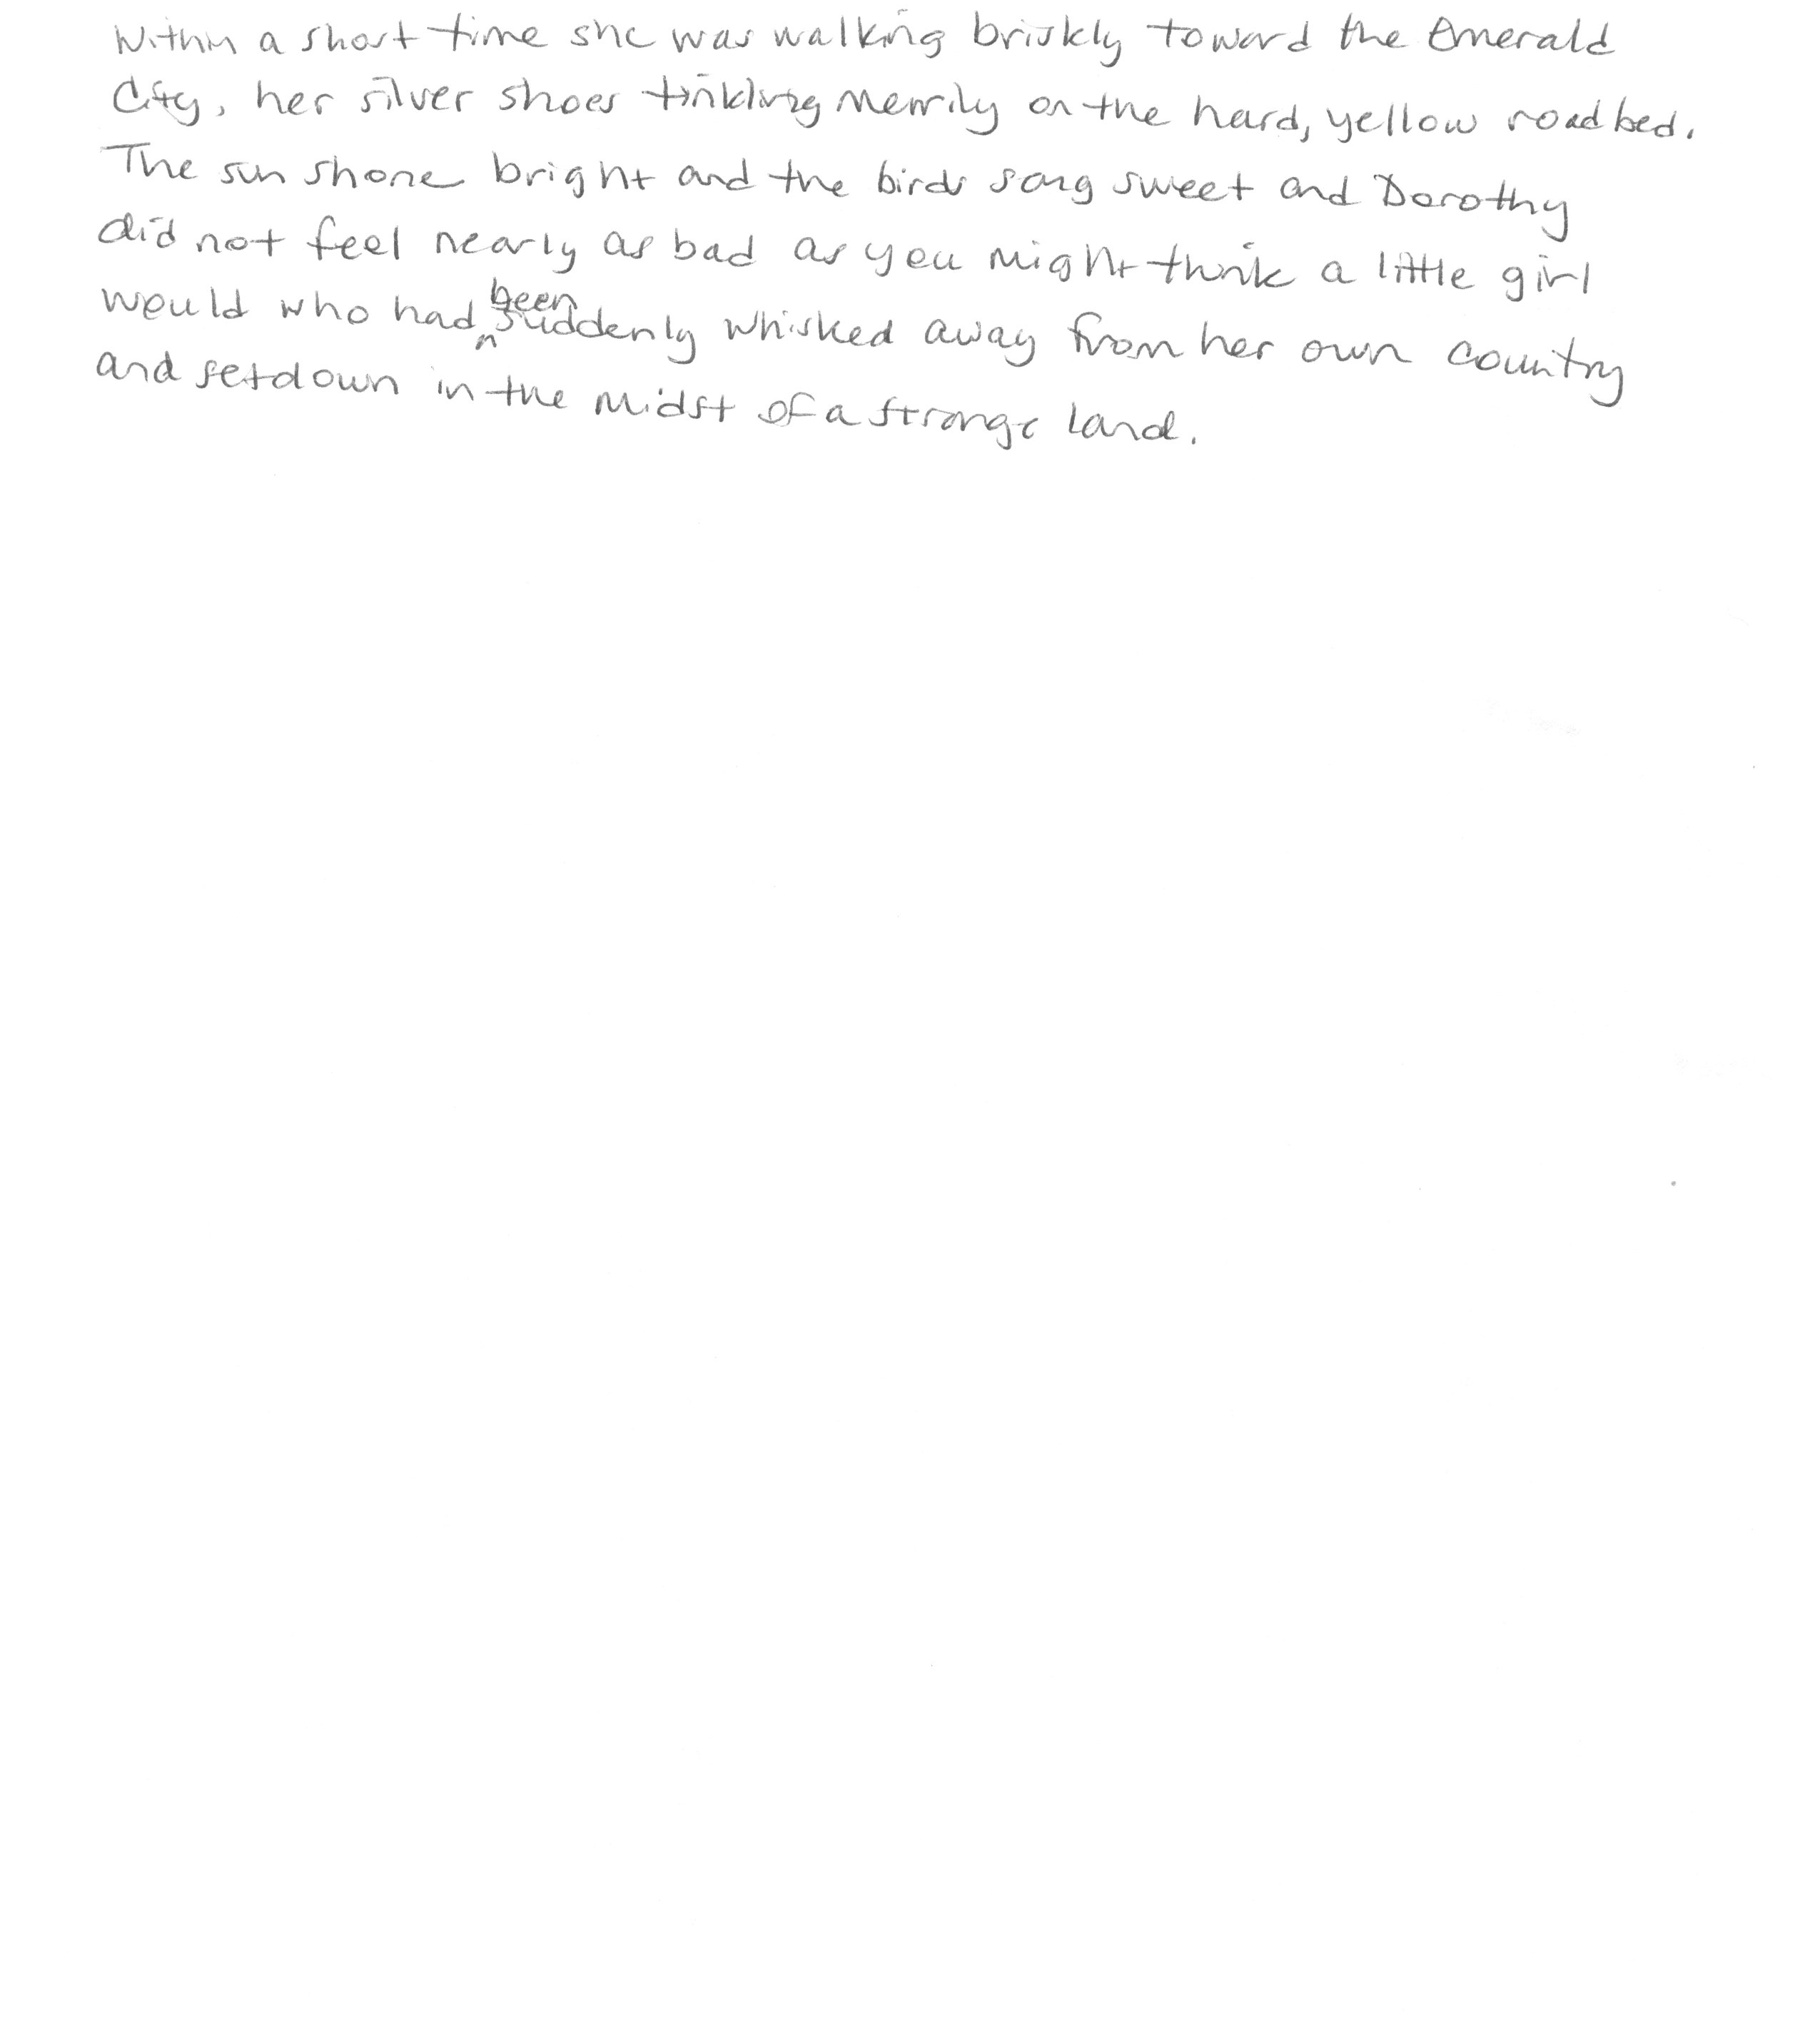 Within a short time she was walking briskly toward the Emerald
City, her silver shoes tinkling merrily on the hard, yellow road bed.
The sun shone bright and the birds sang sweet and Dorothy
did not feel nearly as bad as you might think a little girl
would who had been suddenly whisked away from her own country
and set down in the midst of a strange land.